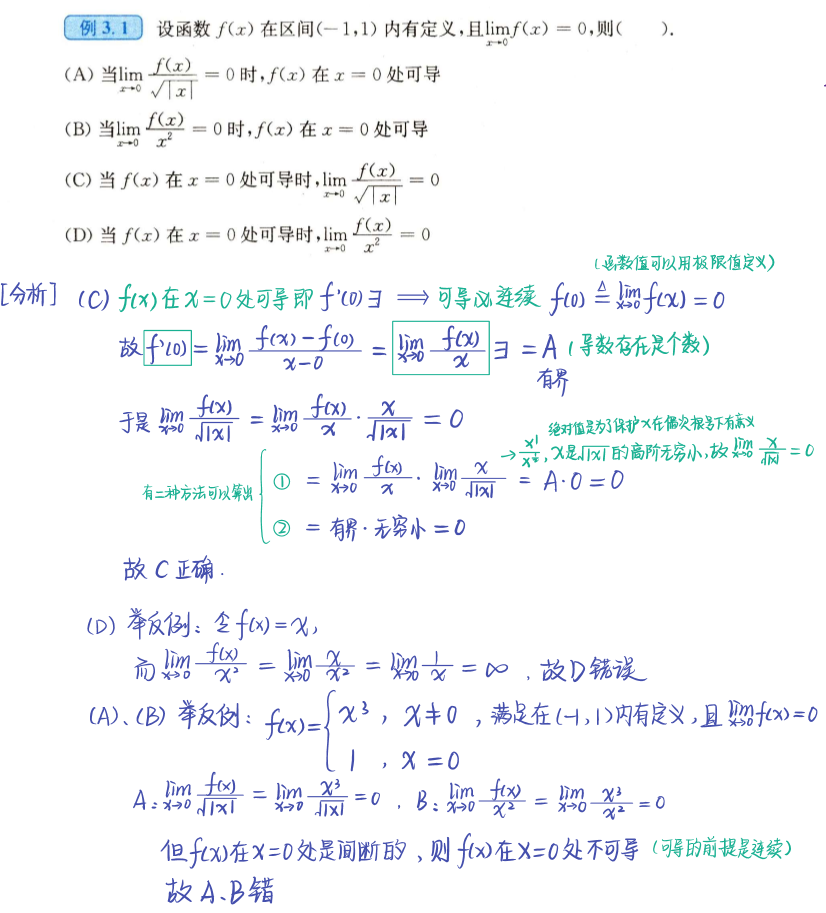 例 3.1 设函数 f(x) 在区间(−1,1) 内有定义,且lim_{x→0} f(x) = 0,则(  ).
(A) 当lim_{x→0} f(x)/√|x| = 0 时,f(x) 在 x = 0 处可导
(B) 当lim_{x→0} f(x)/x² = 0 时,f(x) 在 x = 0 处可导
(C) 当 f(x) 在 x = 0 处可导时,lim_{x→0} f(x)/√|x| = 0
(D) 当 f(x) 在 x = 0 处可导时,lim_{x→0} f(x)/x² = 0
(函数值可以用极限值定义)
[分析] (C) f(x)在x=0处可导即 f'(0)∃ ⟹ 可导必连续 f(0) ≜ lim_{x→0} f(x) = 0
故 f'(0) = lim_{x→0} (f(x)−f(0))/(x−0) = lim_{x→0} f(x)/x ∃ = A (导数存在是个数)
有界
于是 lim_{x→0} f(x)/√|x| = lim_{x→0} f(x)/x · x/√|x| = 0
绝对值是为了保护x在偶次根号下有意义
→ , x是√|x|的高阶无穷小,故 lim_{x→0} x/√|x| = 0
有二种方法可以算出
① = lim_{x→0} f(x)/x · lim_{x→0} x/√|x| = A·0 = 0
② = 有界·无穷小 = 0
故 C 正确.
(D) 举反例: 令 f(x)=x,
而 lim_{x→0} f(x)/x² = lim_{x→0} x/x² = lim_{x→0} 1/x = ∞ , 故D错误
(A)、(B) 举反例: f(x)= { x³ , x≠0 , 满足在(-1,1)内有定义,且 lim_{x→0} f(x)=0
1 , x=0
A: lim_{x→0} f(x)/√|x| = lim_{x→0} x³/√|x| = 0 , B: lim_{x→0} f(x)/x² = lim_{x→0} x³/x² = 0
但f(x)在x=0处是间断的 , 则 f(x)在x=0处不可导 (可导的前提是连续)
故 A、B错